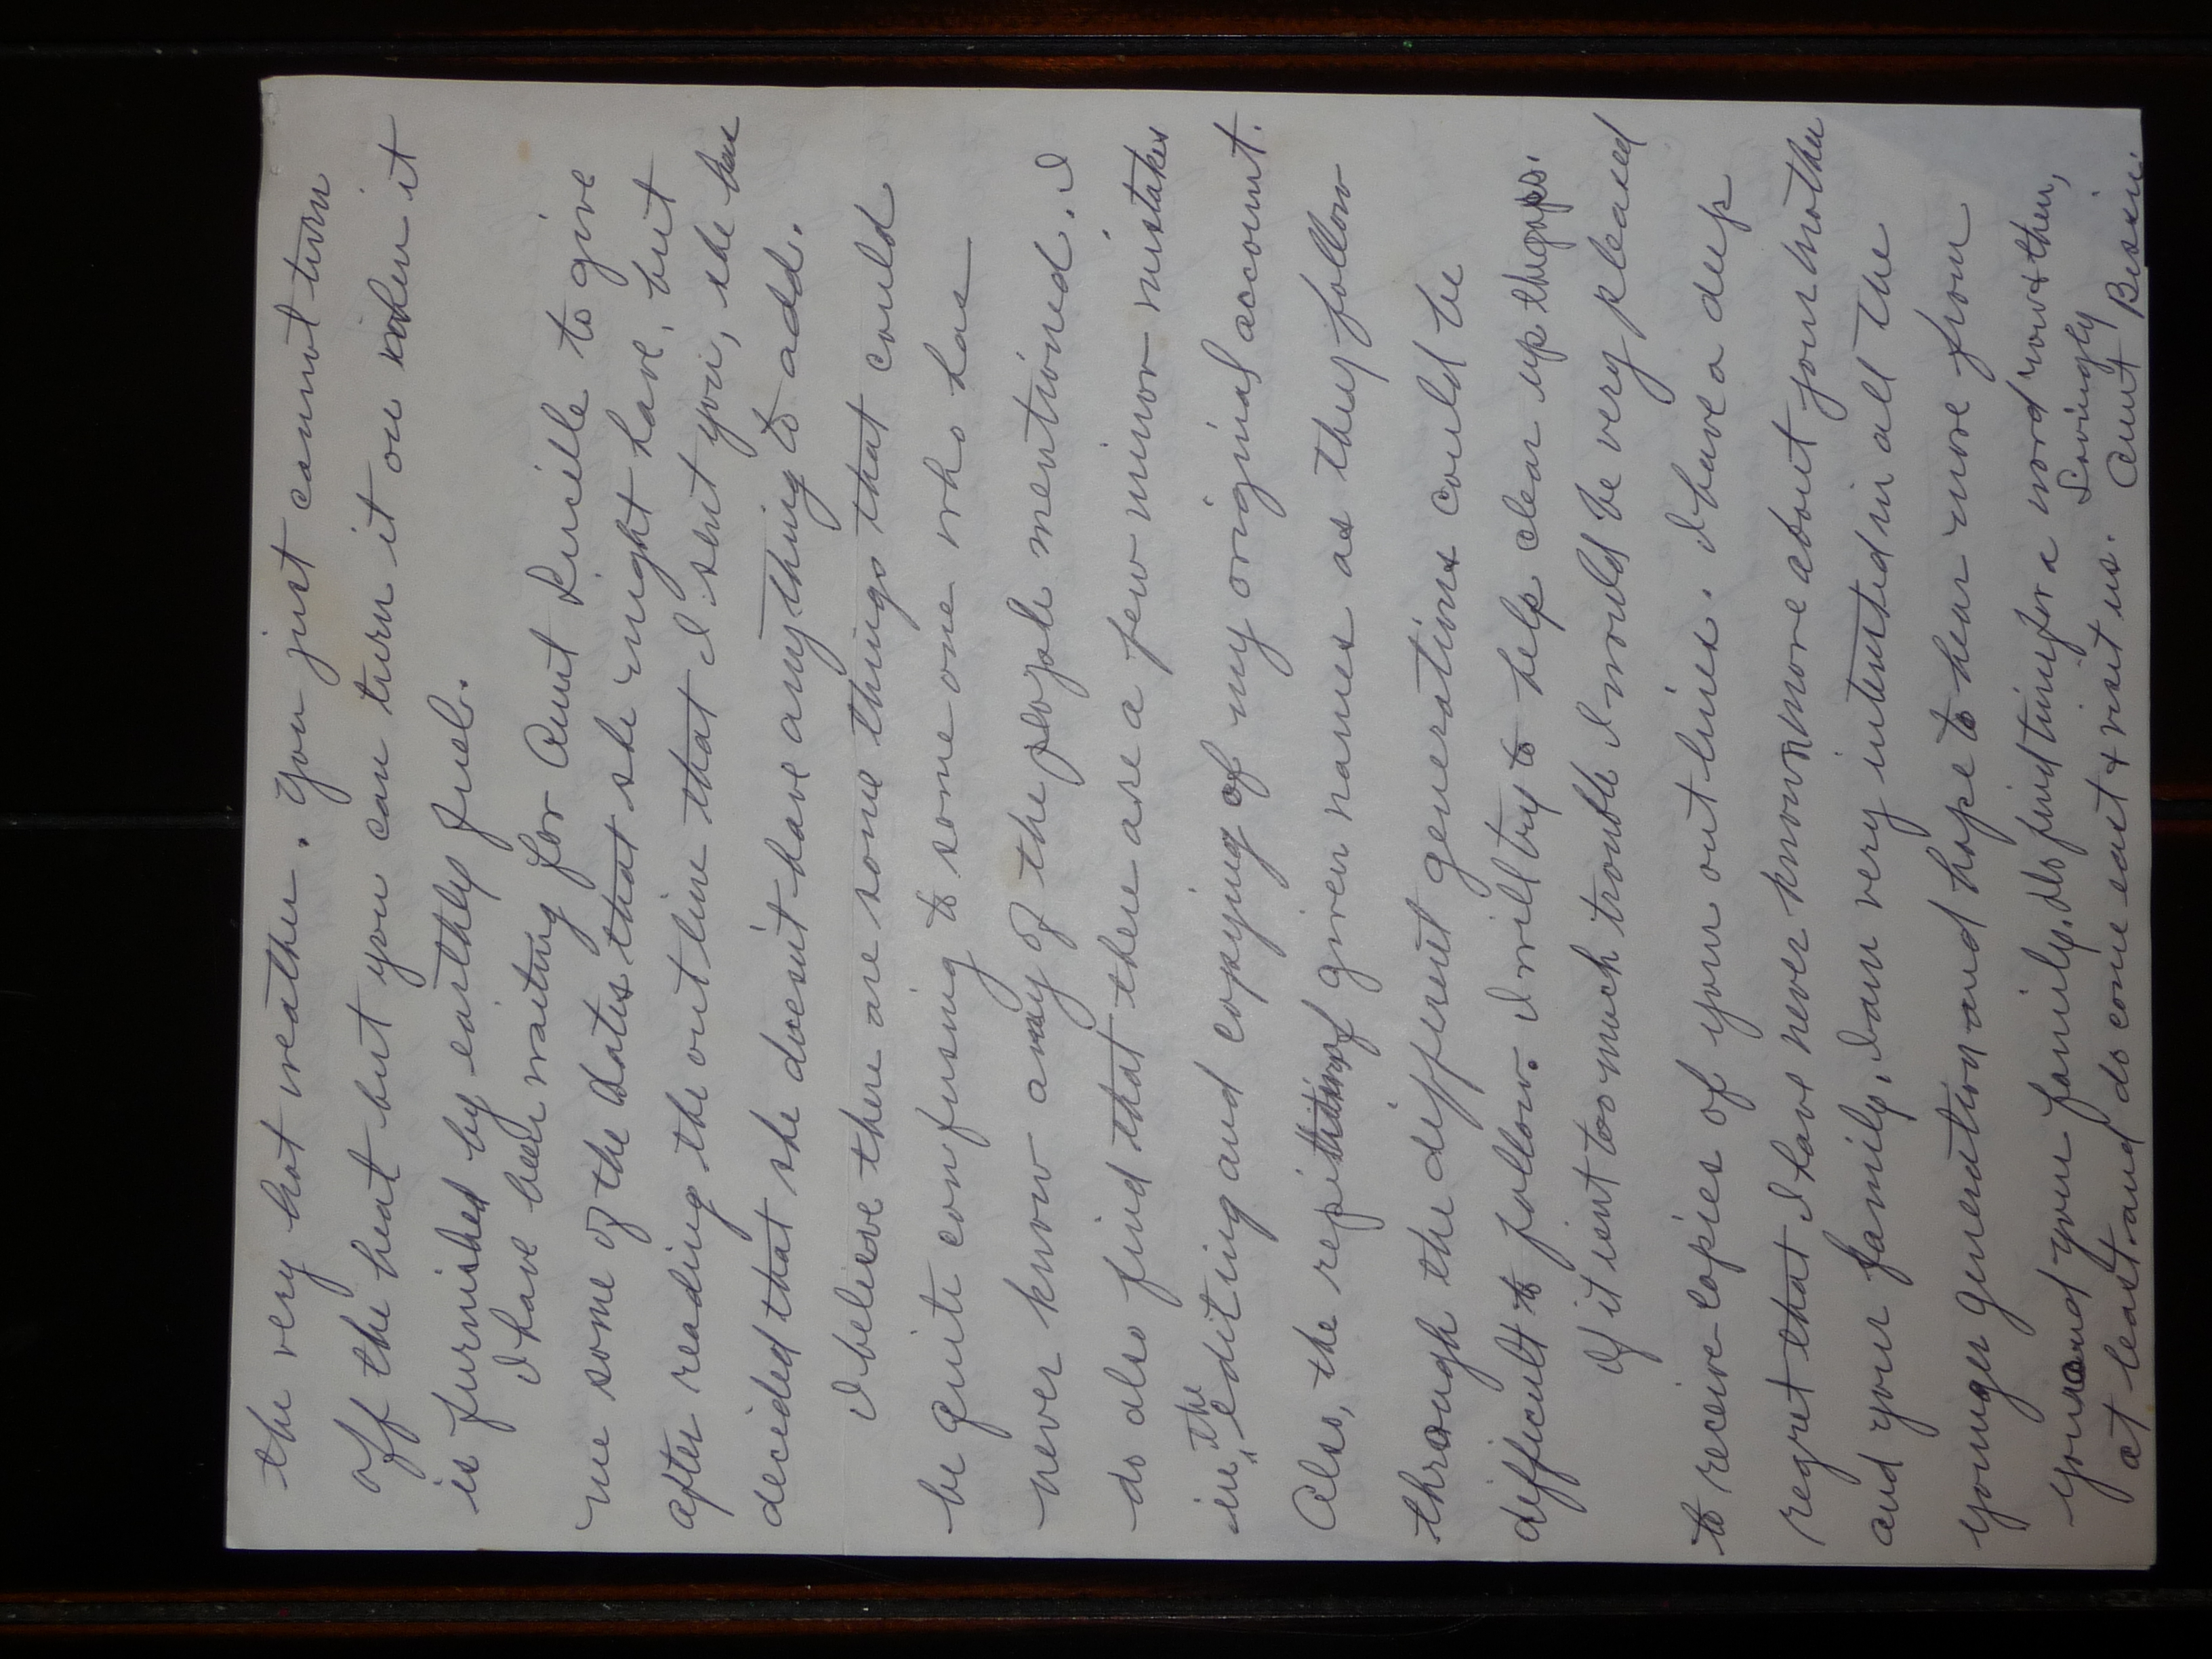 the very hot weather. You just cannot turn
off the heat but you can turn it on when it
is furnished by earthly fuel.
I have been waiting for Aunt Lucille to give
me some of the dates that she might have, but
after reading the outline that I sent you, she has
decided that she doesn't have anything to add.
I believe there are some things that could
be quite confusing to some one who has
never know any of the people mentioned. I
do also find that there are a few minor mistakes
in the editing and copying of my original account.
Also, the repitition of given names as they follow
through the different generations could be
difficult to follow. I will try to help clear up the gaps.
If it isnt too much trouble I would be very pleased
to receive copies of your out lines. I have a deep
regret that I have never known more about your mother
and your family, I am very interested in all the
younger generation and hope to hear more from
you and your family. Do find time for a word now & then,
at least and do come east & visit us. Lovingly
Aunt Bessie.